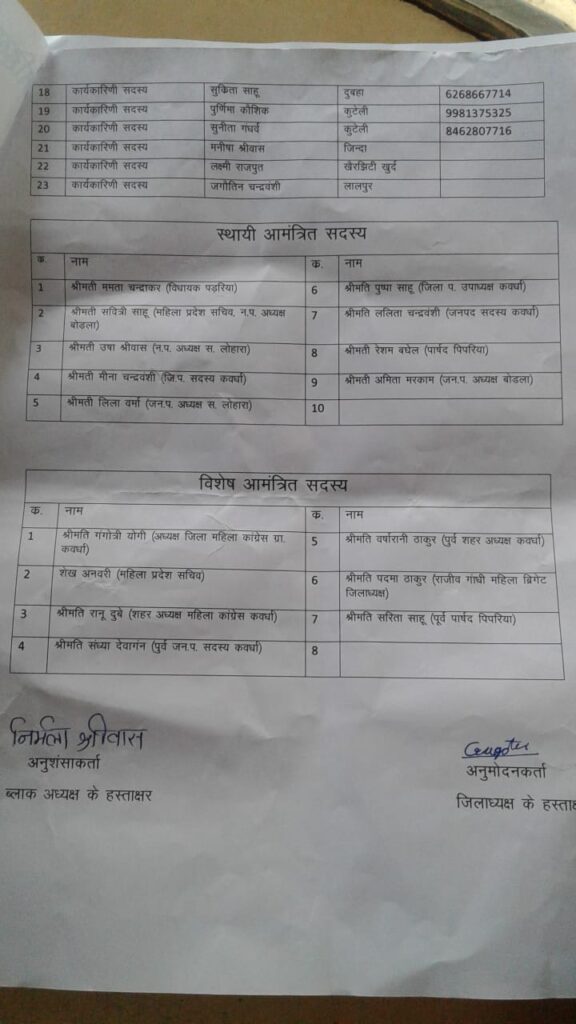 18 कार्यकारिणी सदस्य सुकिता साहू दुबहा 6268667714
19 कार्यकारिणी सदस्य पुर्णिमा कौशिक कुटेली 9981375325
20 कार्यकारिणी सदस्य सुनीता गंधर्व कुटेली 8462807716
21 कार्यकारिणी सदस्य मनीषा श्रीवास जिन्दा
22 कार्यकारिणी सदस्य लक्ष्मी राजपुत खैरझिटी खुर्द
23 कार्यकारिणी सदस्य जगौतिन चन्द्रवंशी लालपुर
स्थायी आमंत्रित सदस्य
क. नाम क. नाम
1 श्रीमती ममता चन्द्राकर (विधायक पंडरिया) 6 श्रीमति पुष्पा साहू (जिला प. उपाध्यक्ष कवर्धा)
2 श्रीमती सवित्री साहू (महिला प्रदेश सचिव, न.प. अध्यक्ष बोडला) 7 श्रीमति ललिता चन्द्रवंशी (जनपद सदस्य कवर्धा)
3 श्रीमती उषा श्रीवास (न.प. अध्यक्ष स. लोहारा) 8 श्रीमती रेशम बघेल (पार्षद पिपरिया)
4 श्रीमती मीना चन्द्रवंशी (जि.प. सदस्य कवर्धा) 9 श्रीमती अमिता मरकाम (जन.प. अध्यक्ष बोडला)
5 श्रीमती लिला वर्मा (जन.प. अध्यक्ष स. लोहारा) 10
विशेष आमंत्रित सदस्य
क. नाम क. नाम
1 श्रीमति गंगोत्री योगी (अध्यक्ष जिला महिला कांग्रेस ग्रा. कवर्धा) 5 श्रीमति वर्षारानी ठाकुर (पुर्व शहर अध्यक्ष कवर्धा)
2 शेख अनवरी (महिला प्रदेश सचिव) 6 श्रीमति पदमा ठाकुर (राजीव गांधी महिला ब्रिगेट जिलाध्यक्ष)
3 श्रीमति रानू दुबे (शहर अध्यक्ष महिला कांग्रेस कवर्धा) 7 श्रीमति सरिता साहू (पूर्व पार्षद पिपरिया)
4 श्रीमति संध्या देवागंन (पुर्व जन.प. सदस्य कवर्धा) 8
निर्मला श्रीवास
अनुशंसाकर्ता अनुमोदनकर्ता
ब्लाक अध्यक्ष के हस्ताक्षर जिलाध्यक्ष के